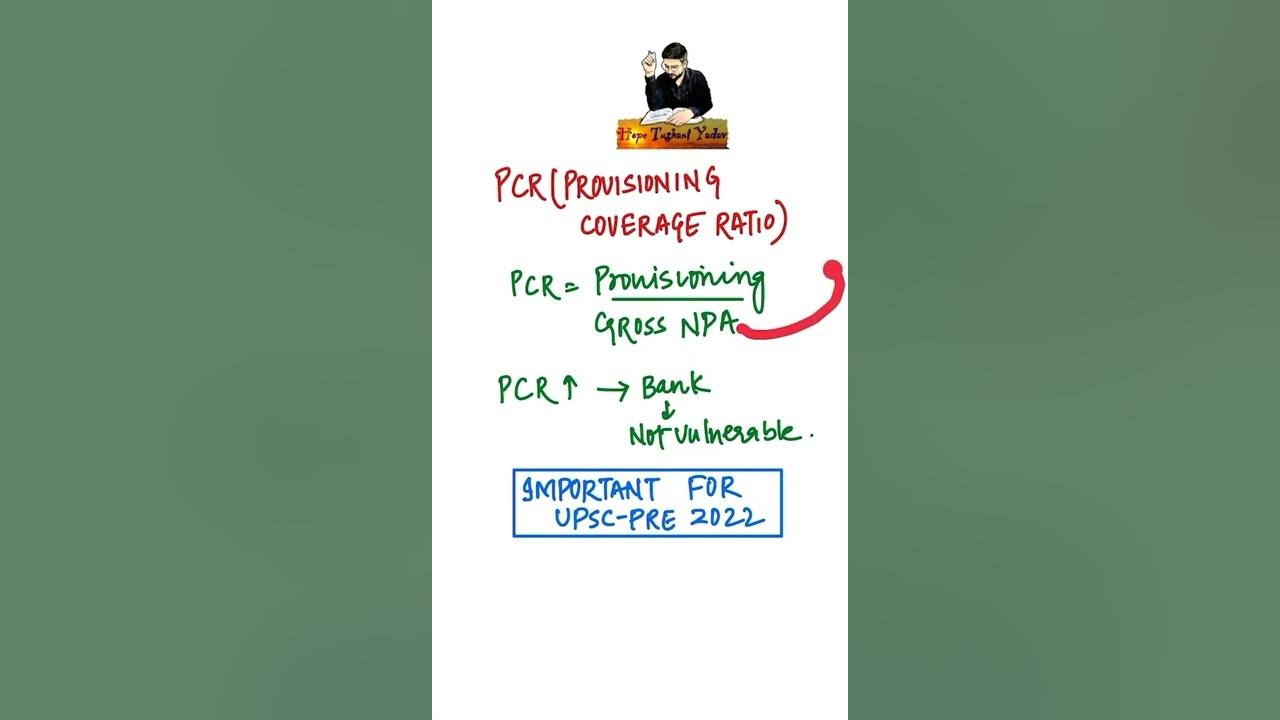 Hope Tushant Yadav
PCR (PROVISIONING
COVERAGE RATIO)
PCR = Provisioning
GROSS NPA
PCR ↑ → Bank
↓
Not vulnerable.
IMPORTANT FOR
UPSC-PRE 2022